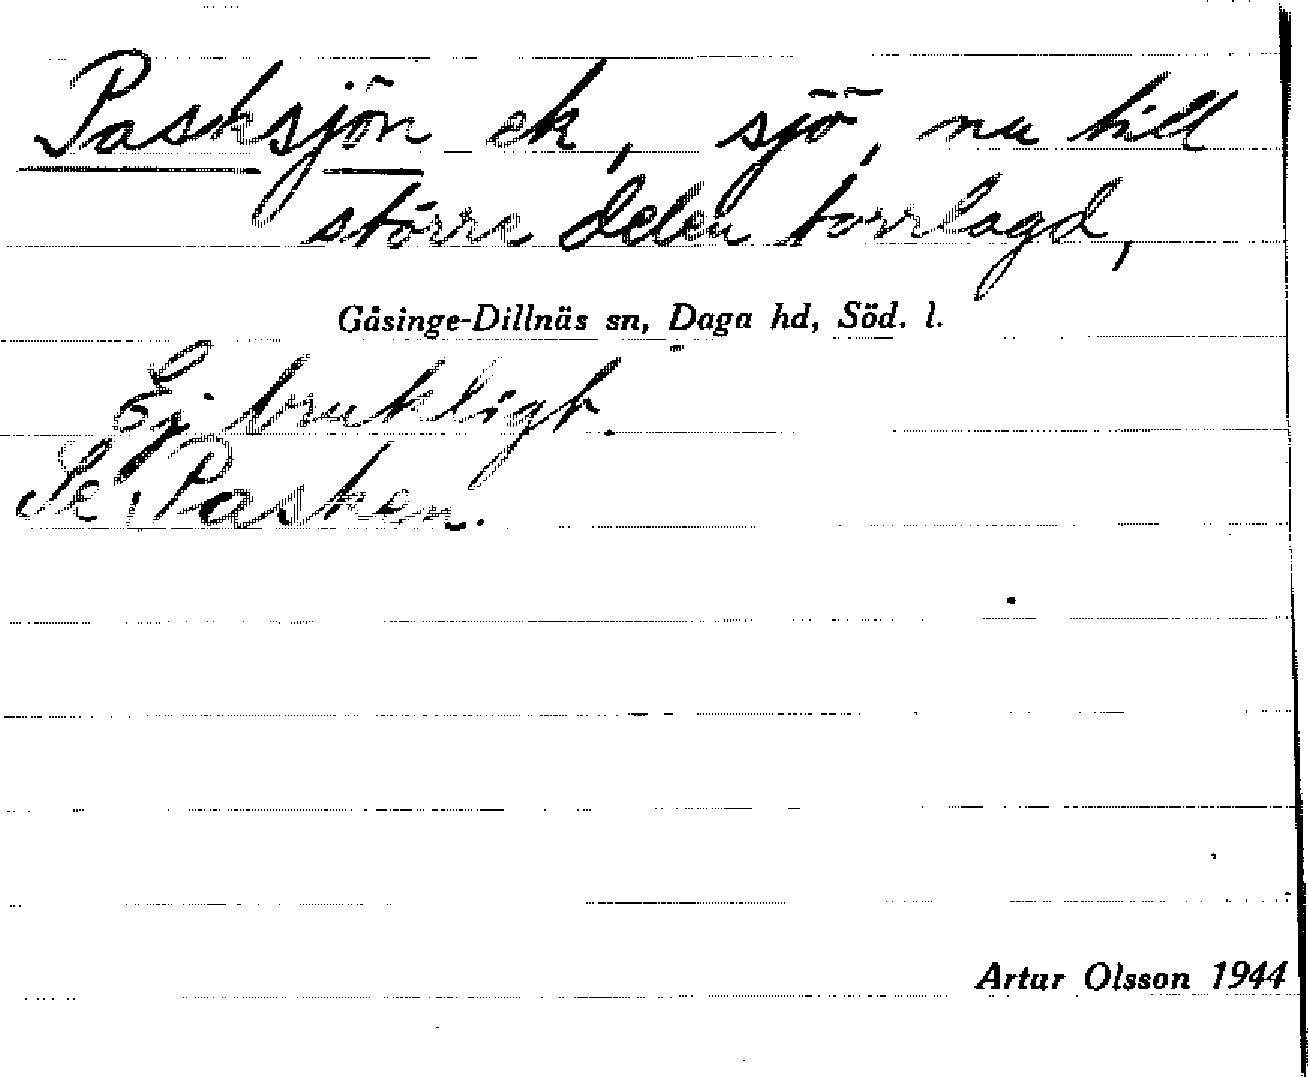 Pasksjön ek, sjö, nu till
större delen torrlagd,
Gåsinge-Dillnäs sn, Daga hd, Söd. l.
Ej brukligt.
Se Pasken.
Artur Olsson 1944